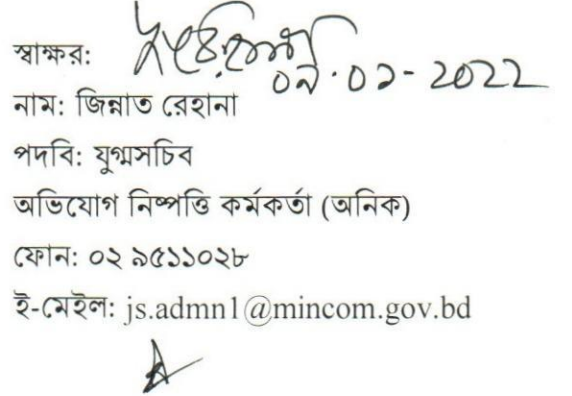 স্বাক্ষর:
০৯.০১-2022
নাম: জিন্নাত রেহানা
পদবি: যুগ্মসচিব
অভিযোগ নিষ্পত্তি কর্মকর্তা (অনিক)
ফোন: ০২ ৯৫১১০২৮
ই-মেইল: js.admn1@mincom.gov.bd